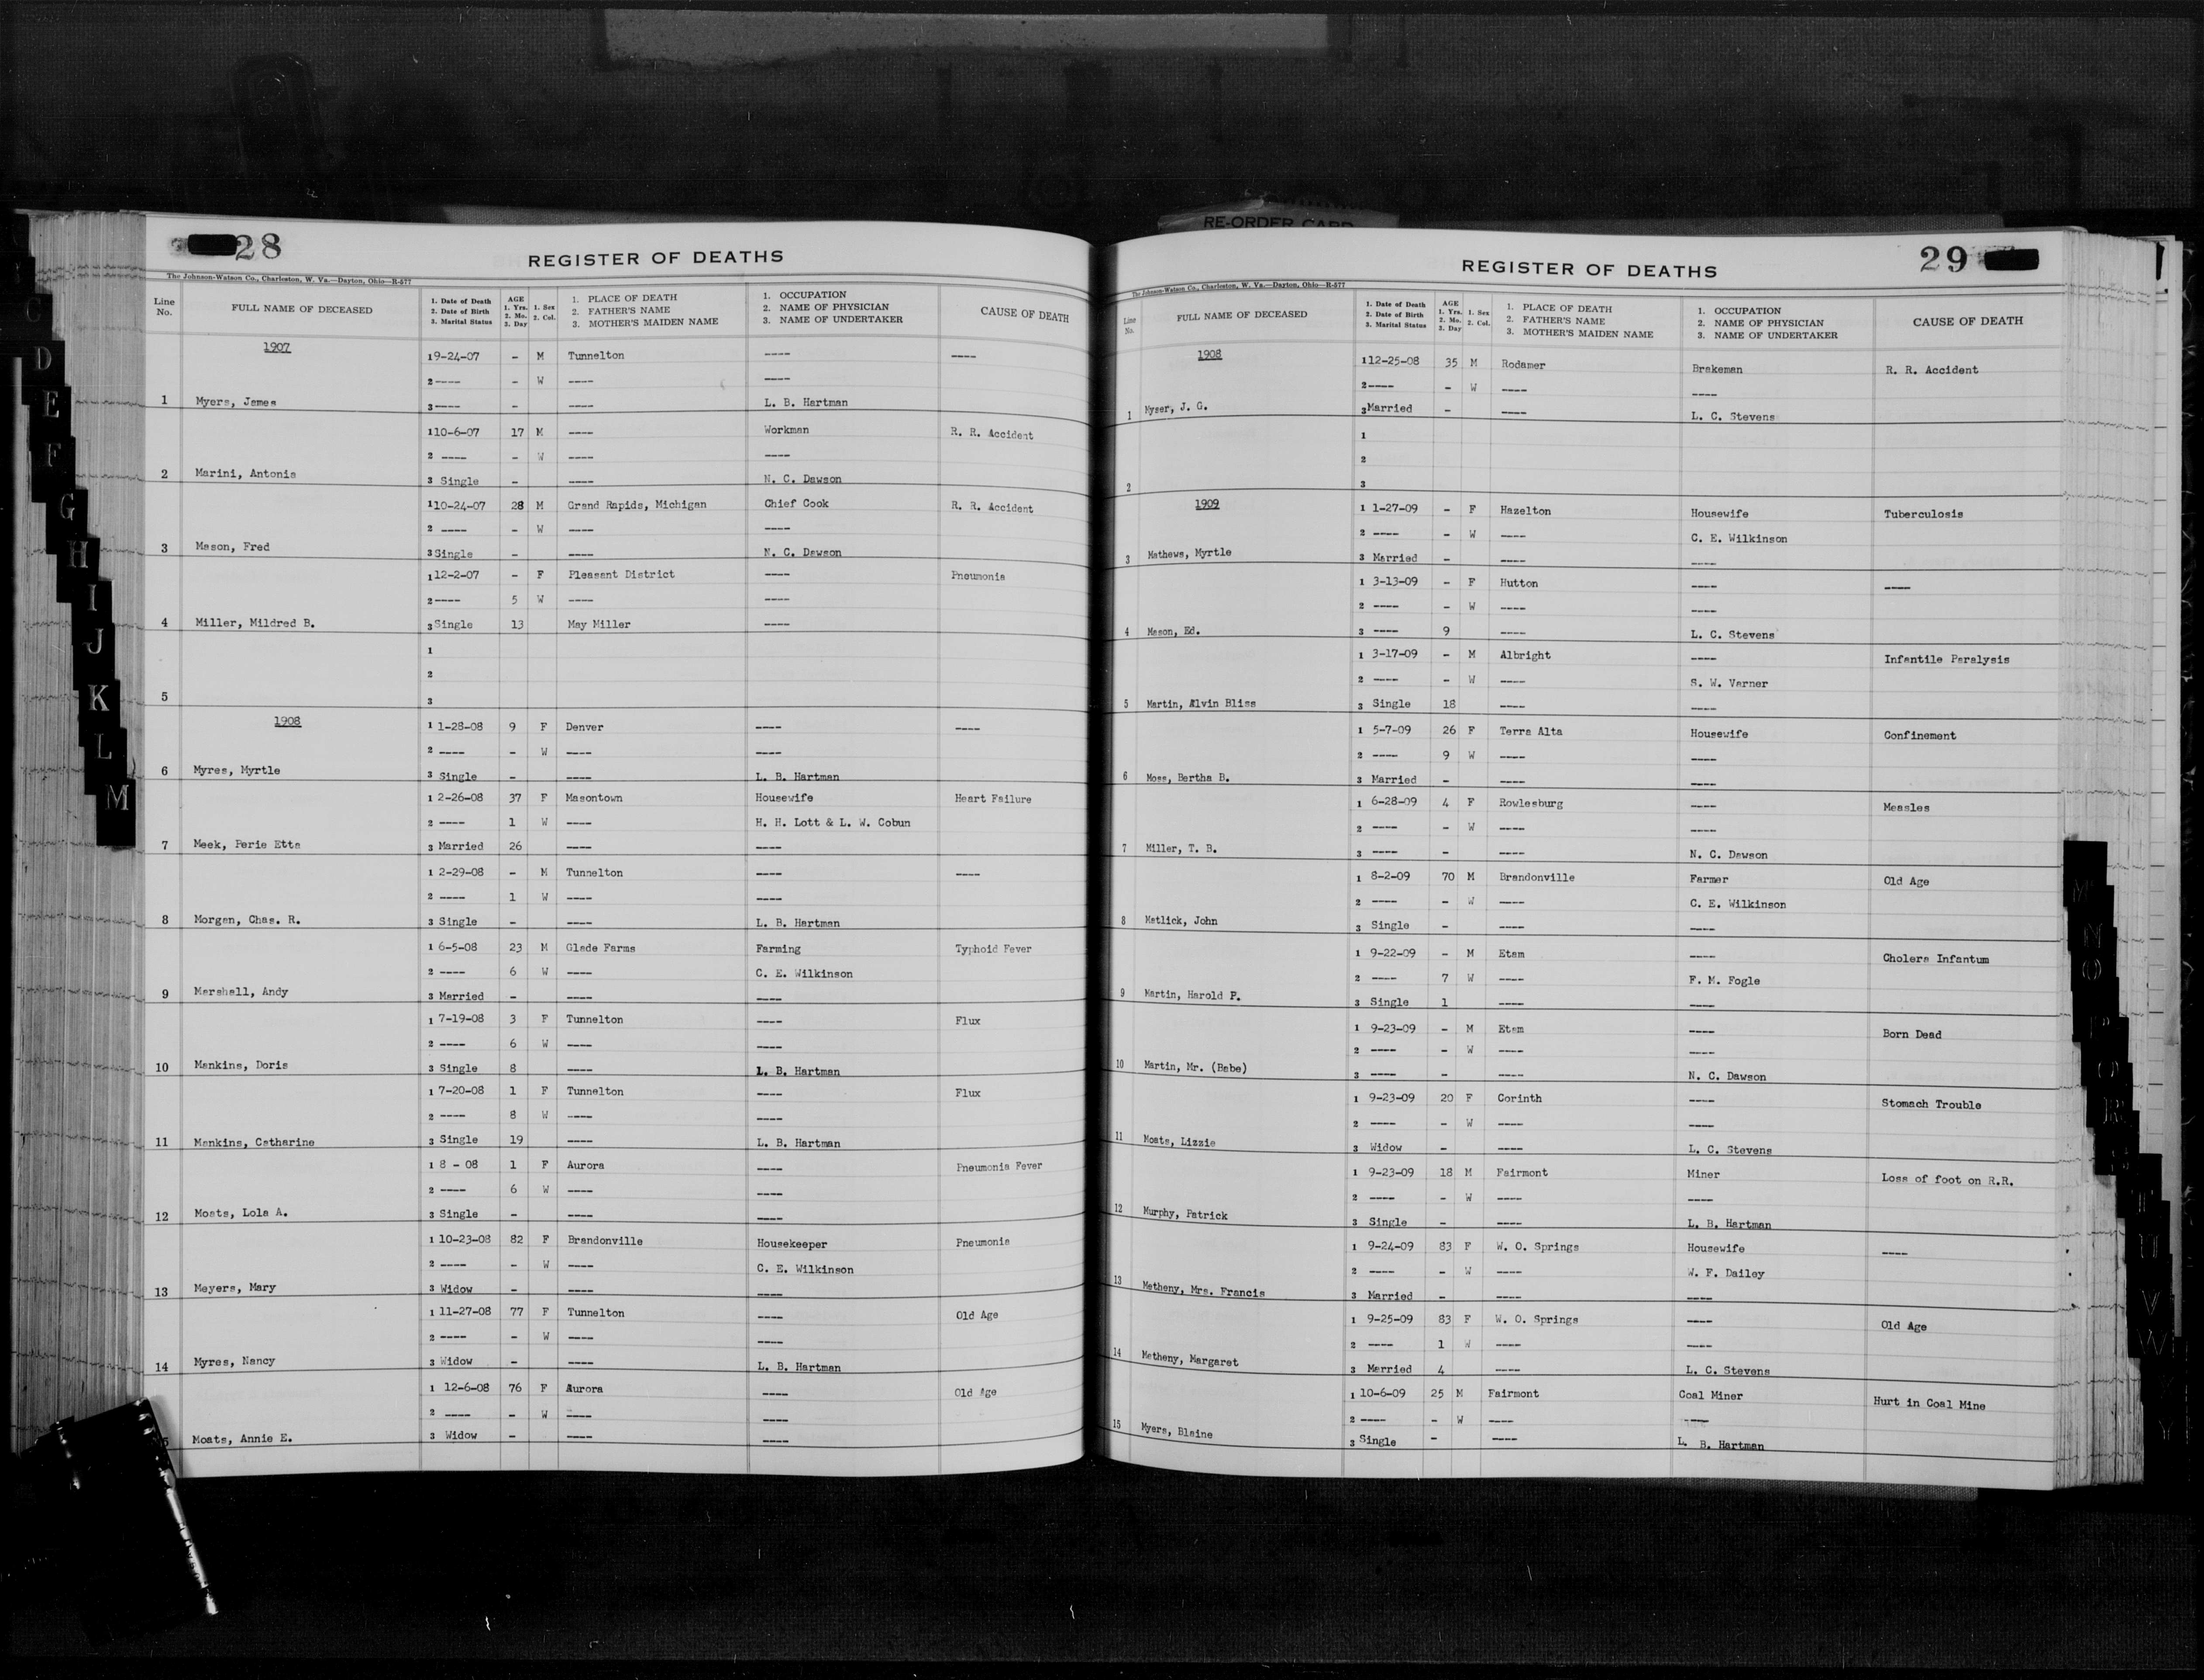 RE-ORDER CARD
28
REGISTER OF DEATHS
The Johnson-Watson Co., Charleston, W. Va.—Dayton, Ohio—R-577
Line No. FULL NAME OF DECEASED 1. Date of Death 2. Date of Birth 3. Marital Status AGE 1. Yrs. 2. Mo. 3. Day 1. Sex 2. Col. 1. PLACE OF DEATH 2. FATHER'S NAME 3. MOTHER'S MAIDEN NAME 1. OCCUPATION 2. NAME OF PHYSICIAN 3. NAME OF UNDERTAKER CAUSE OF DEATH
1907
1 9-24-07 - M Tunnelton ---- ----
2 ---- - W ---- ----
1 Myers, James 3 ---- - ---- L. B. Hartman
1 10-6-07 17 M ---- Workman R. R. Accident
2 ---- - W ---- ----
2 Marini, Antonia 3 Single - ---- N. C. Dawson
1 10-24-07 28 M Grand Rapids, Michigan Chief Cook R. R. Accident
2 ---- - W ---- ----
3 Mason, Fred 3 Single - ---- N. C. Dawson
1 12-2-07 - F Pleasant District ---- Pneumonia
2 ---- 5 W ---- ----
4 Miller, Mildred B. 3 Single 13 May Miller ----
1
2
5 3
1908
1 1-28-08 9 F Denver ---- ----
2 ---- - W ---- ----
6 Myres, Myrtle 3 Single - ---- L. B. Hartman
1 2-26-08 37 F Masontown Housewife Heart Failure
2 ---- 1 W ---- H. H. Lott & L. W. Cobun
7 Meek, Perie Etta 3 Married 26 ---- ----
1 2-29-08 - M Tunnelton ---- ----
2 ---- 1 W ---- ----
8 Morgan, Chas. R. 3 Single - ---- L. B. Hartman
1 6-5-08 23 M Glade Farms Farming Typhoid Fever
2 ---- 6 W ---- C. E. Wilkinson
9 Marshall, Andy 3 Married - ---- ----
1 7-19-08 3 F Tunnelton ---- Flux
2 ---- 6 W ---- ----
10 Mankins, Doris 3 Single 8 ---- L. B. Hartman
1 7-20-08 1 F Tunnelton ---- Flux
2 ---- 8 W ---- ----
11 Mankins, Catharine 3 Single 19 ---- L. B. Hartman
1 8 - 08 1 F Aurora ---- Pneumonia Fever
2 ---- 6 W ---- ----
12 Moats, Lola A. 3 Single - ---- ----
1 10-23-08 82 F Brandonville Housekeeper Pneumonia
2 ---- - W ---- C. E. Wilkinson
13 Meyers, Mary 3 Widow - ---- ----
1 11-27-08 77 F Tunnelton ---- Old Age
2 ---- - W ---- ----
14 Myres, Nancy 3 Widow - ---- L. B. Hartman
1 12-6-08 76 F Aurora ---- Old Age
2 ---- - W ---- ----
Moats, Annie E. 3 Widow - ---- ----
C
D
E
F
G
H
I
J
K
L
M
29
REGISTER OF DEATHS
The Johnson-Watson Co., Charleston, W. Va.—Dayton, Ohio—R-577
Line No. FULL NAME OF DECEASED 1. Date of Death 2. Date of Birth 3. Marital Status AGE 1. Yrs. 2. Mo. 3. Day 1. Sex 2. Col. 1. PLACE OF DEATH 2. FATHER'S NAME 3. MOTHER'S MAIDEN NAME 1. OCCUPATION 2. NAME OF PHYSICIAN 3. NAME OF UNDERTAKER CAUSE OF DEATH
1908
1 12-25-08 35 M Rodamer Brakeman R. R. Accident
2 ---- - W ---- ----
1 Myser, J. G. 3 Married - ---- L. C. Stevens
1
2
2 3
1909
1 1-27-09 - F Hazelton Housewife Tuberculosis
2 ---- - W ---- C. E. Wilkinson
3 Mathews, Myrtle 3 Married - ---- ----
1 3-13-09 - F Hutton ---- ----
2 ---- - W ---- ----
4 Mason, Ed. 3 ---- 9 ---- L. C. Stevens
1 3-17-09 - M Albright ---- Infantile Paralysis
2 ---- - W ---- S. W. Varner
5 Martin, Alvin Bliss 3 Single 18 ---- ----
1 5-7-09 26 F Terra Alta Housewife Confinement
2 ---- 9 W ---- ----
6 Moss, Bertha B. 3 Married - ---- ----
1 6-28-09 4 F Rowlesburg ---- Measles
2 ---- - W ---- ----
7 Miller, T. B. 3 ---- - ---- N. C. Dawson
1 8-2-09 70 M Brandonville Farmer Old Age
2 ---- - W ---- C. E. Wilkinson
8 Matlick, John 3 Single - ---- ----
1 9-22-09 - M Etam ---- Cholera Infantum
2 ---- 7 W ---- F. M. Fogle
9 Martin, Harold P. 3 Single 1 ---- ----
1 9-23-09 - M Etam ---- Born Dead
2 ---- - W ---- ----
10 Martin, Mr. (Babe) 3 ---- - ---- N. C. Dawson
1 9-23-09 20 F Corinth ---- Stomach Trouble
2 ---- - W ---- ----
11 Moats, Lizzie 3 Widow - ---- L. C. Stevens
1 9-23-09 18 M Fairmont Miner Loss of foot on R.R.
2 ---- - W ---- ----
12 Murphy, Patrick 3 Single - ---- L. B. Hartman
1 9-24-09 83 F W. O. Springs Housewife ----
2 ---- - W ---- W. F. Dailey
13 Metheny, Mrs. Francis 3 Married - ---- ----
1 9-25-09 83 F W. O. Springs ---- Old Age
2 ---- 1 W ---- ----
14 Metheny, Margaret 3 Married 4 ---- L. C. Stevens
1 10-6-09 25 M Fairmont Coal Miner Hurt in Coal Mine
2 ---- - W ---- ----
15 Myers, Blaine 3 Single - ---- L. B. Hartman
M
N
O
P
Q
R
V
W
Y